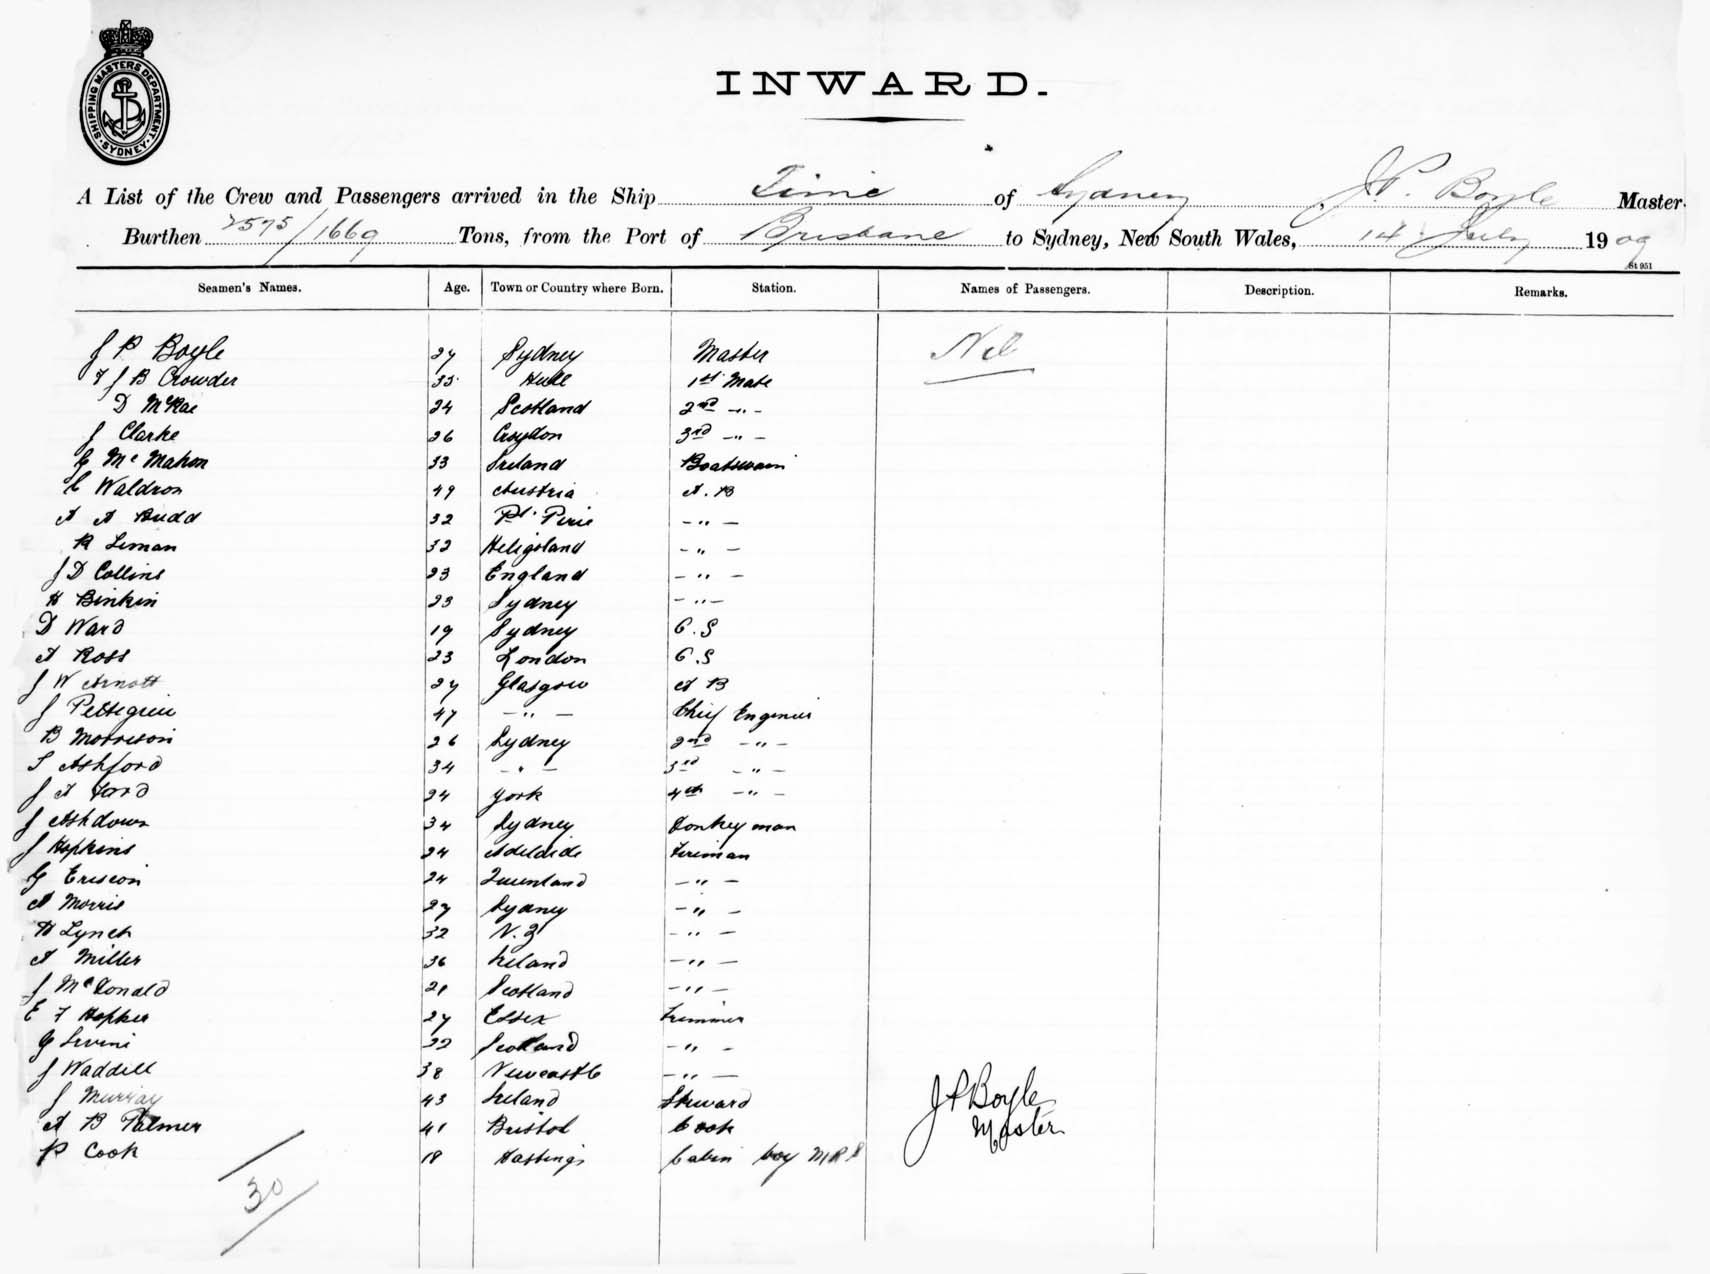 SHIPPING MASTERS DEPARTMENT SYDNEY
INWARD.
A List of the Crew and Passengers arrived in the Ship Time of Sydney, J. P. Boyle Master.
Burthen 2575/1669 Tons, from the Port of Brisbane to Sydney, New South Wales, 14 July 1909
St 951
Seamen's Names. Age. Town or Country where Born. Station. Names of Passengers. Description. Remarks.
J P Boyle 27 Sydney Master Nil
F J B Crowder 35 Hull 1st Mate
D McRae 24 Scotland 2nd -"-
J Clarke 26 Croydon 3rd -"-
E McMahon 33 Ireland Boatswain
C Waldron 49 Austria A.B
A A Budd 32 Pt. Pirie -"-
R Leman 32 Heligoland -"-
J D Collins 23 England -"-
H Binkin 23 Sydney -"-
D Ward 19 Sydney O.S
A Ross 23 London O.S
J W Arnott 27 Glasgow A B
J Pettegrew 47 -"- Chief Engineer
B Morrison 26 Sydney 2nd -"-
S Ashford 34 -"- 3rd -"-
J A Ford 24 York 4th -"-
J Ashdown 34 Sydney Donkeyman
J Hopkins 24 Adelaide Fireman
G Ericson 24 Queensland -"-
A Morris 27 Sydney -"-
H Lynch 32 N.Z -"-
A Miller 36 Ireland -"-
J McDonald 21 Scotland -"-
E F Hopker 27 Essex Trimmer
G Levine 22 Scotland -"-
J Waddell 38 Newcastle -"-
J Murray 43 Ireland Steward
A B Palmer 41 Bristol Cook
P Cook 18 Hastings Cabin boy
J P Boyle
Master
30